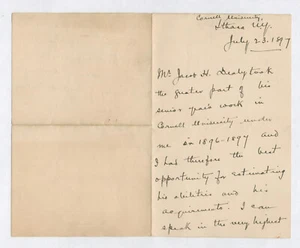 Cornell University,
Ithaca N.Y.
July 23. 1897
Mr Jacob H. Dealy took
the greater part of his
senior year's work in
Cornell University under
me in 1896-1897 and
I had therefore the best
opportunity for estimating
his abilities and his
acquirements. I can
speak in the very highest